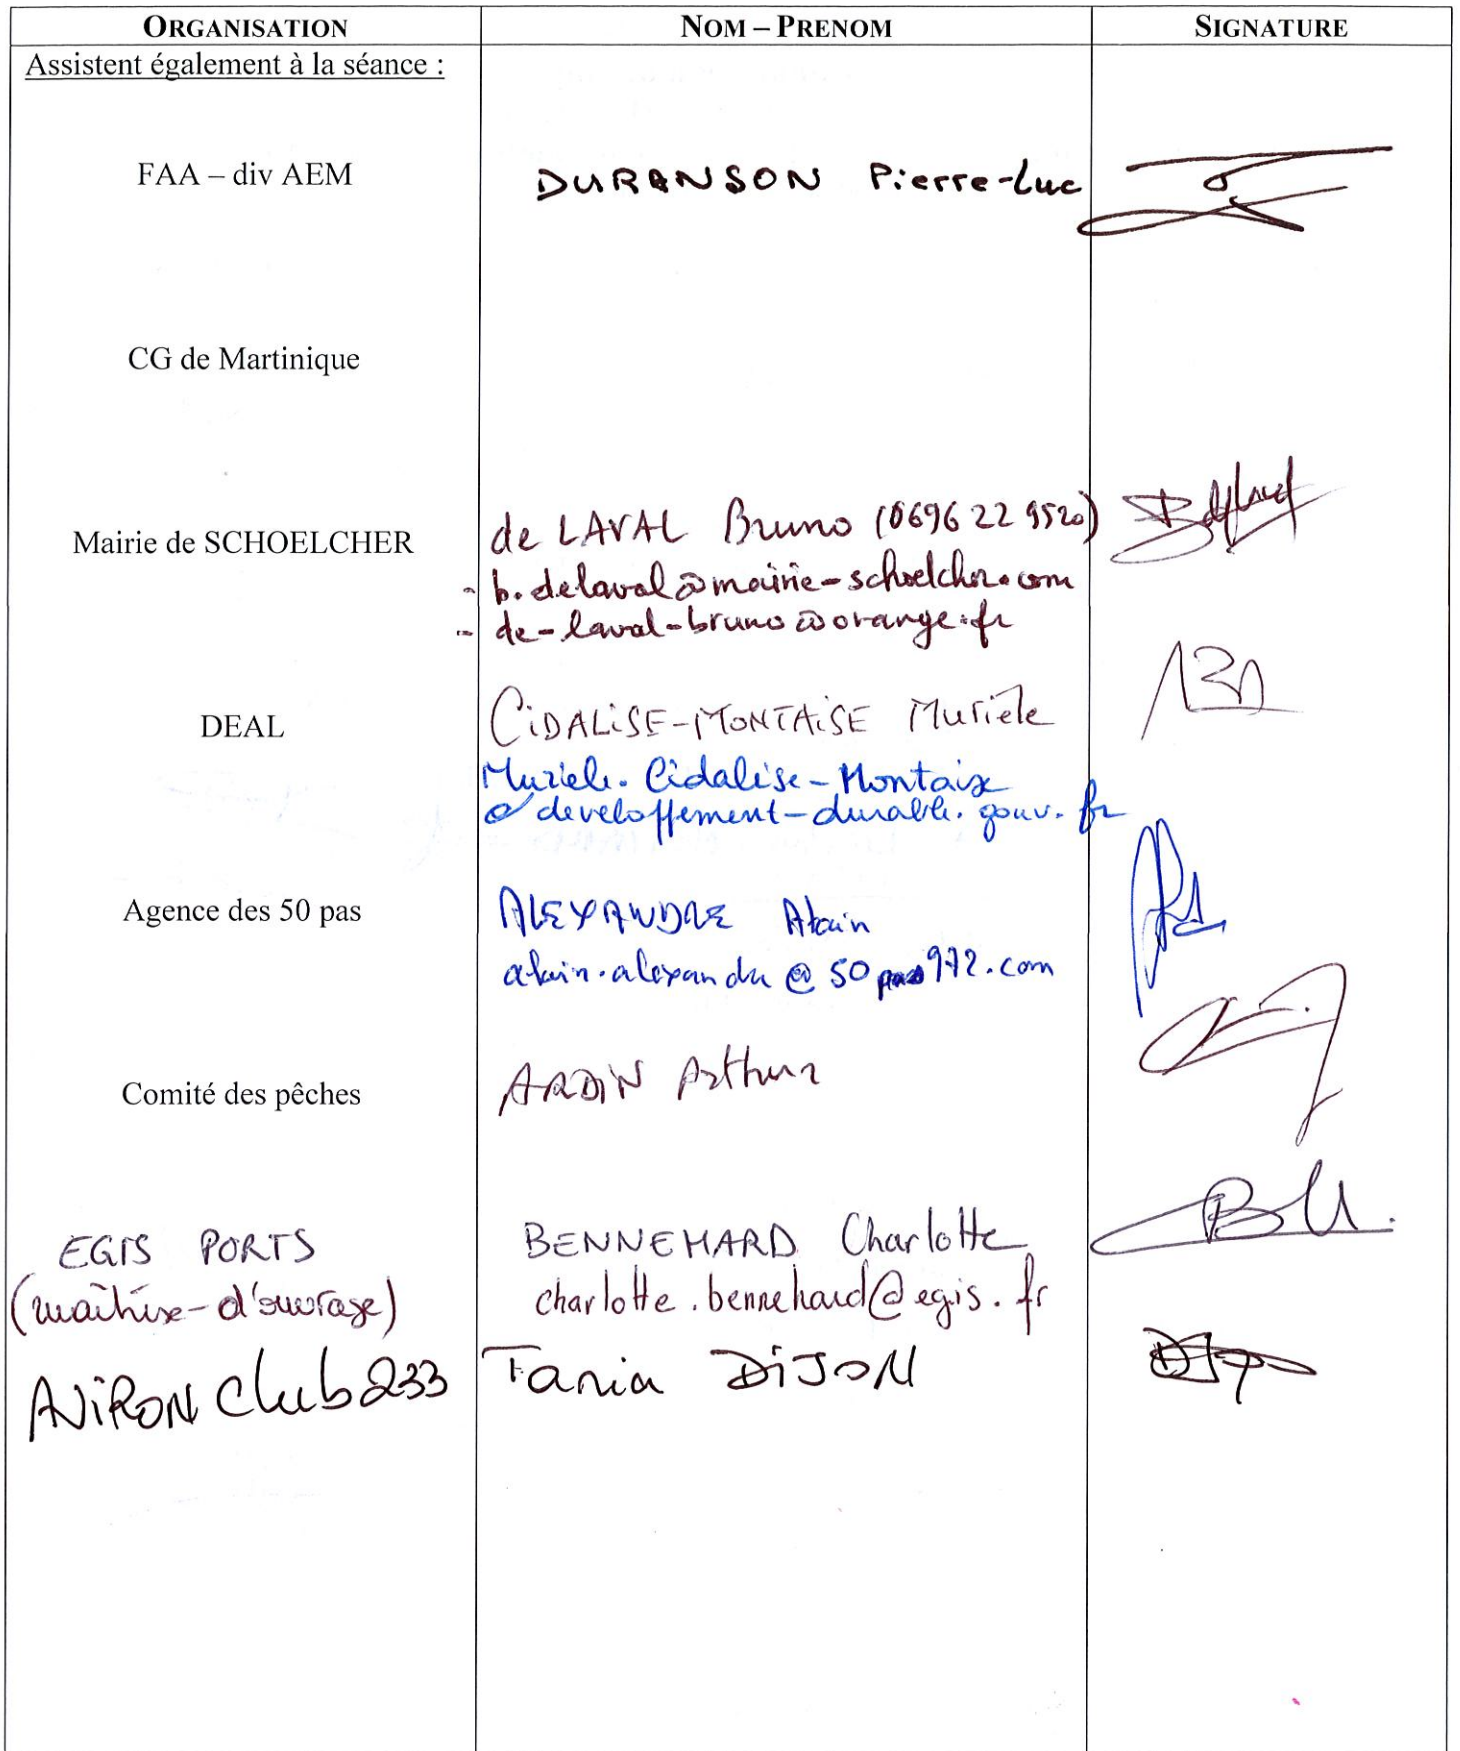 ORGANISATION NOM – PRENOM SIGNATURE
Assistent également à la séance :
FAA – div AEM DURANSON Pierre-Luc
CG de Martinique
Mairie de SCHOELCHER de LAVAL Bruno (0696 22 9520)
- b.delaval@mairie-schoelcher.com
- de-laval-bruno@orange.fr
DEAL CIDALISE-MONTAISE Murièle
Murièle.Cidalise-Montaise
@developpement-durable.gouv.fr
Agence des 50 pas ALEXANDRE Alain
alain.alexandre@50pas972.com
Comité des pêches ARDIN Arthur
EGIS PORTS BENNEHARD Charlotte
(maîtrise-d'ouvrage) charlotte.bennehard@egis.fr
AVIRON Club 233 Tania DIJON